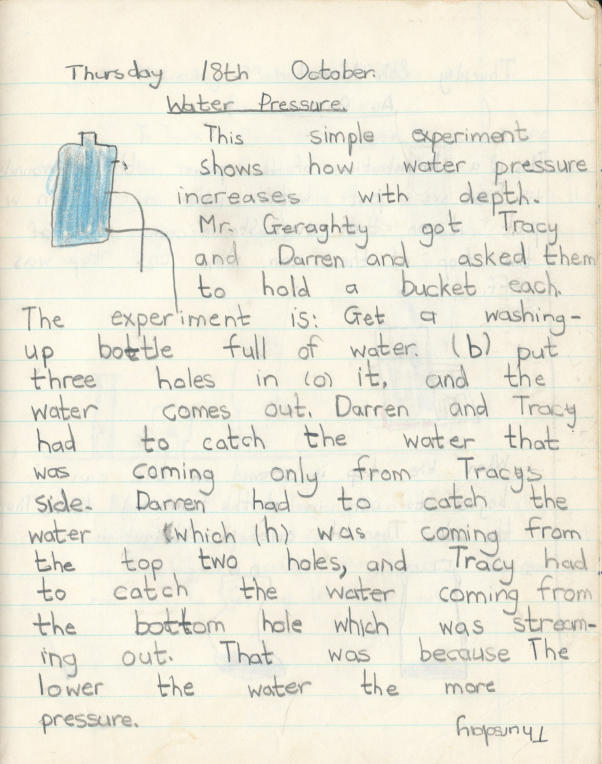 Thursday 18th October.
Water Pressure.
This simple experiment
shows how water pressure
increases with depth.
Mr. Geraghty got Tracy
and Darren and asked them
to hold a bucket each.
The experiment is: Get a washing-
up bottle full of water. (b) put
three holes in (o) it, and the
water comes out. Darren and Tracy
had to catch the water that
was coming only from Tracy's
side. Darren had to catch the
water which (h) was coming from
the top two holes, and Tracy had
to catch the water coming from
the bottom hole which was stream-
ing out. That was because The
lower the water the more
pressure.
Thursday